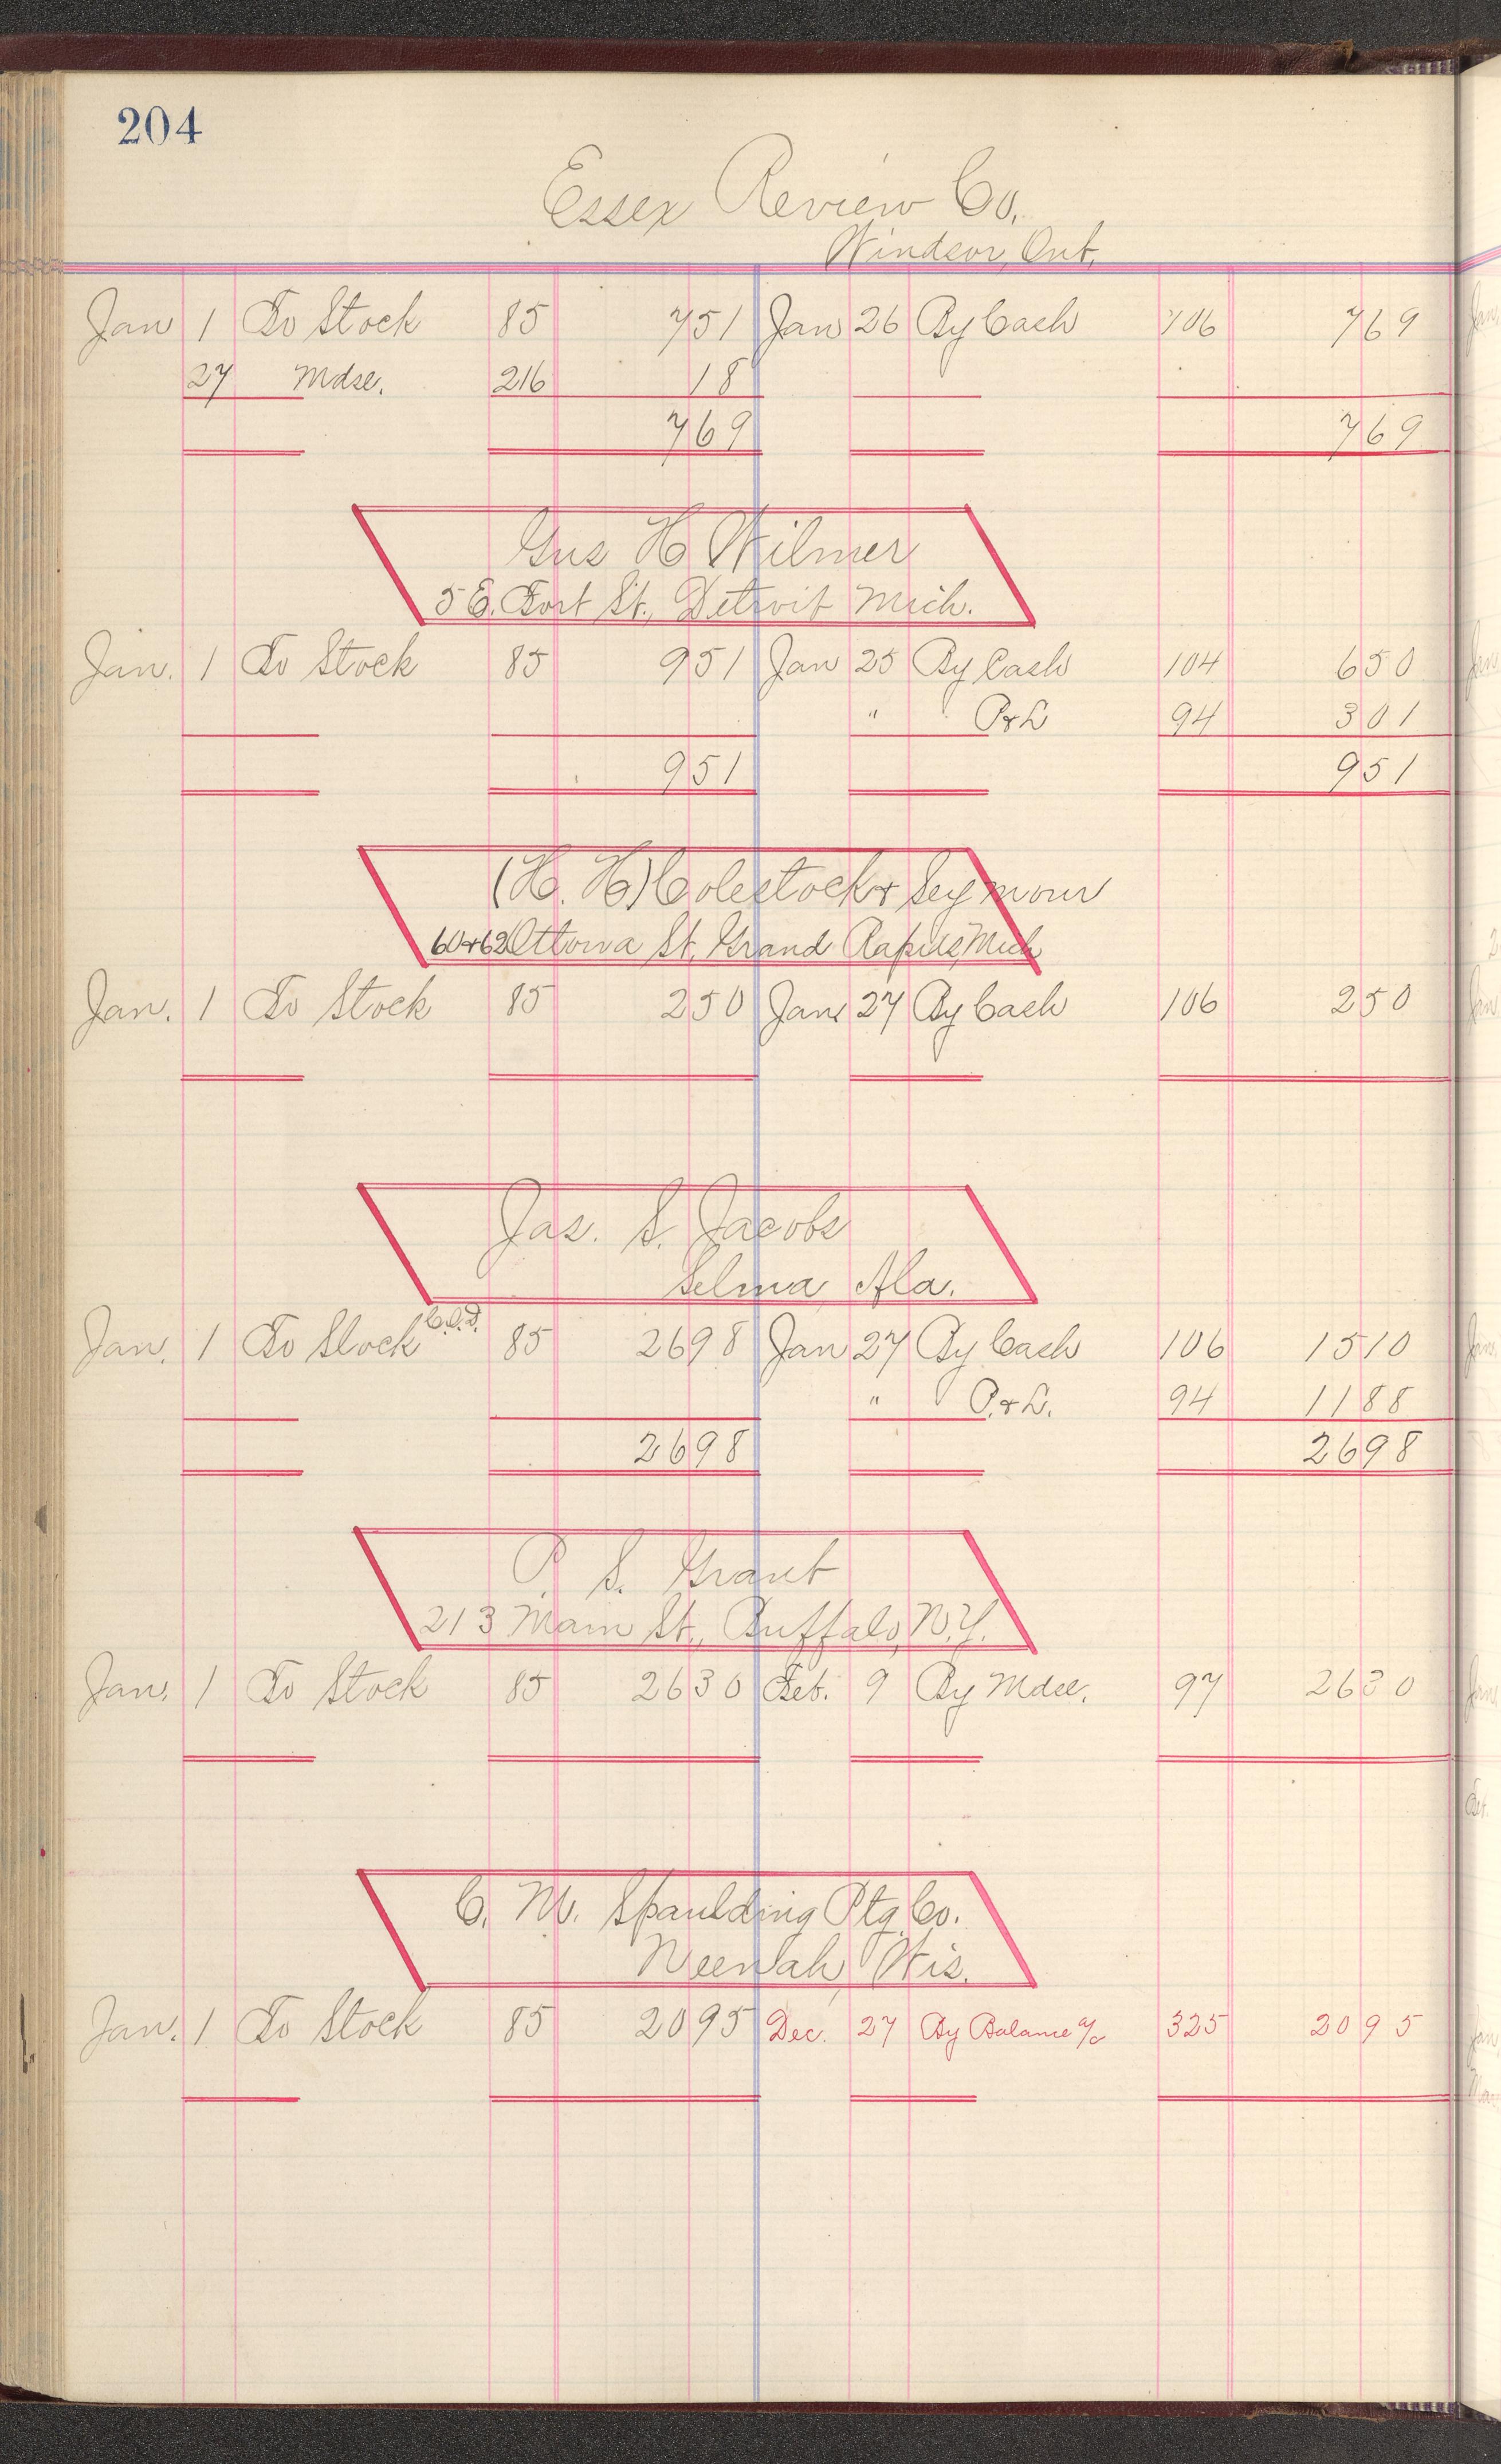 204
Essex Review Co.
Windsor, Ont.
Jan 1 To Stock 85 751 Jan 26 By Cash 106 769
27 Mdse. 216 18
769 769
Gus H Wilmer
5 E. Fort St., Detroit Mich.
Jan. 1 To Stock 85 951 Jan 25 By Cash 104 650
" P&L 94 301
951 951
(H. H) Colestock & Seymour
60+62 Ottowa St. Grand Rapids, Mich
Jan. 1 To Stock 85 250 Jan 27 By Cash 106 250
Jas. S. Jacobs
Selma, Ala.
Jan. 1 To Stock C.O.D. 85 2698 Jan 27 By Cash 106 1510
" P.&L. 94 1188
2698 2698
P. S. Grant
213 Main St., Buffalo, N.Y.
Jan. 1 To Stock 85 2630 Feb. 9 By Mdse. 97 2630
C. M. Spaulding Ptg. Co.
Neenah, Wis.
Jan. 1 To Stock 85 2095 Dec. 27 By Balance a/c 325 2095